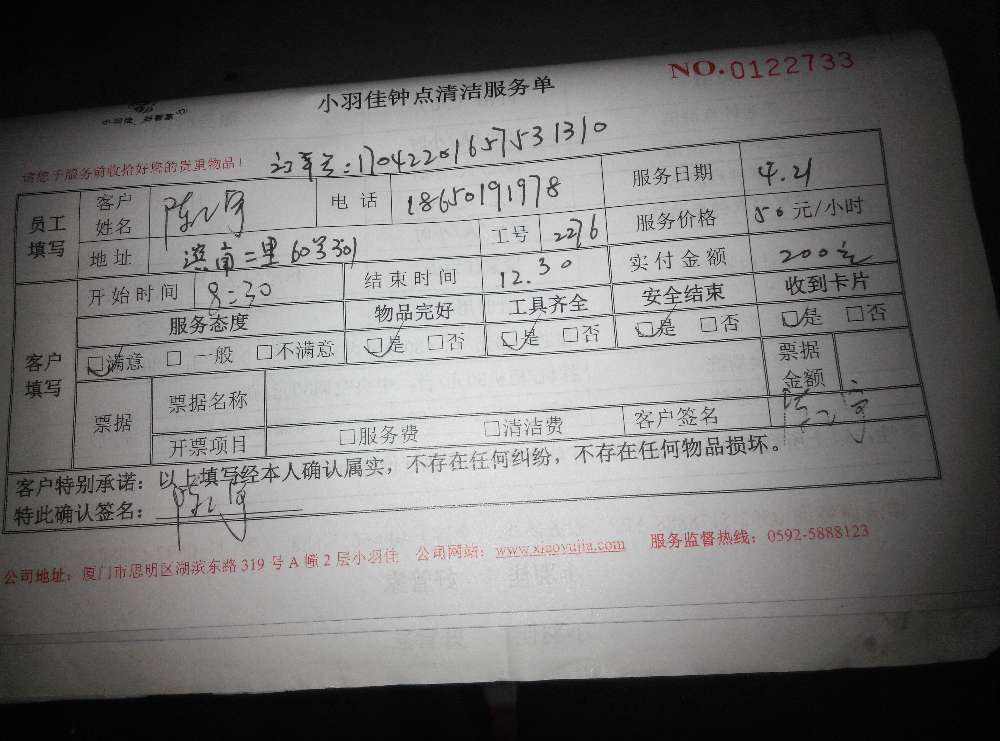 NO.0122733
小羽佳钟点清洁服务单
小羽佳 好管家
请您于服务前收拾好您的贵重物品！
订单号：17042201657531310
员工填写 客户姓名 电话 18650191978 服务日期 4.21
地址 二里60号301 工号 2276 服务价格 50元/小时
客户填写 开始时间 8:30 结束时间 12.30 实付金额 200元
服务态度 物品完好 工具齐全 安全结束 收到卡片
□满意 □一般 □不满意 □是 □否 □是 □否 □是 □否 □是 □否
票据 票据名称 票据金额
开票项目 □服务费 □清洁费 客户签名
客户特别承诺：以上填写经本人确认属实，不存在任何纠纷，不存在任何物品损坏。
特此确认签名：
公司地址：厦门市思明区湖滨东路319号A幢2层小羽佳 公司网站：www.xiaoyujia.com 服务监督热线：0592-5888123